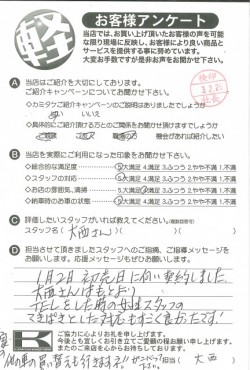 軽
お客様アンケート
当店では、お買い上げ頂いたお客様の声を可能
な限り現場に反映し、お客様により良い商品と
サービスを提供する事に努めています。
大変お手数ですが是非お声をお聞かせ下さい。
A 当店はご紹介を大切にしております。
ご紹介キャンペーンについてお聞かせ下さい。
◇カミタケご紹介キャンペーンのご説明はありましたでしょうか
はい いいえ
◇具体的にご紹介頂ける方とのご関係をお聞かせ頂けますでしょうか
B 当店を実際にご利用になった印象をお聞かせ下さい。
◇総合的な満足度 5.大満足 4.満足 3.ふつう 2.やや不満 1.不満
◇スタッフの対応 5.大満足 4.満足 3.ふつう 2.やや不満 1.不満
◇お店の雰囲気、清掃 5.大満足 4.満足 3.ふつう 2.やや不満 1.不満
◇納車時のお車の状態 5.大満足 4.満足 3.ふつう 2.やや不満 1.不満
C 評価したいスタッフがいれば教えてください。(複数回答可)
スタッフ名( 大西さん )
D 担当させて頂きましたスタッフへのご指摘、ご指導メッセージを
お願いします。応援メッセージもぜひお願いします。
1月2日初売日に伺い契約しました。
大西さんはもとより
だしとした時の女性スタッフの
てきぱきとした対応もすごく良かったです!
K ご協力に心よりお礼を申し上げます。
今後とも引き立てご愛顧の程お願い申し上げます。
またのご来店を心からお待ちしております。
の車の買い替えも行きます!
担当( 大西 )